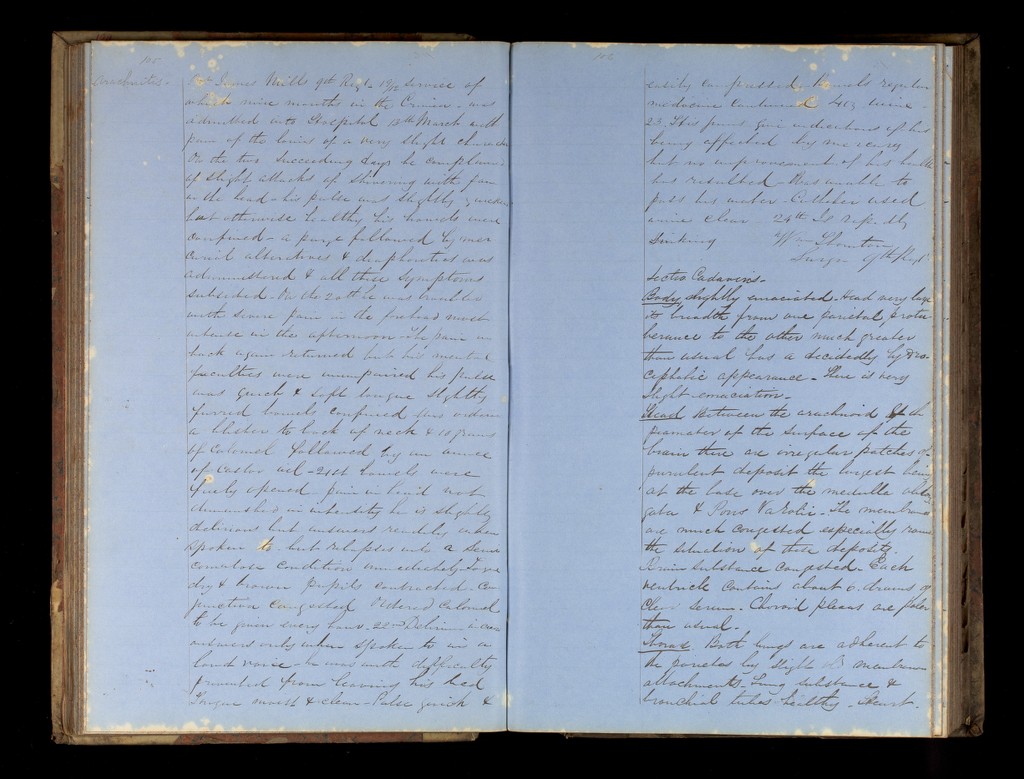 105
Arachnitis.
Pt James Mills 9th Regt 1 9/12 service of
which nine months in the Crimea - was
admitted into Hospital 13th March with
pain of the loins of a very slight character
On the two succeeding days he complained
of slight attacks of shivering with pain
in the head - his pulse was slightly
but otherwise healthy his bowels were
confined - a purge followed by mer
curial alteratives & diaphoretics was
administered & all these symptoms
subsided - On the 20th he was troubled
with severe pain in the forehead most
intense in the afternoon - The pain in
back again returned but his mental
faculties were unimpaired his pulse
was quick & soft tongue slightly
furred bowels confined was ordered
a blister to back of neck & 10 grains
of Calomel followed by an ounce
of castor oil - 21st bowels were
freely opened - pain in head not
diminished in intensity he is slightly
delirious but answers readily when
spoken to but relapses into a semi
comatose condition immediately Tongue
dry & brown pupils contracted - Con
junctiva congested Ordered Calomel
to be given every hour - 22nd Delirium
answers only when spoken to in a
loud voice - he was with difficulty
prevented from leaving his bed
Tongue moist & clean - Pulse quick &
106
easily compressed - Bowels regular
medicine continued urine
23. This point gives indications of his
being affected by mercury
but no improvement of his health
has resulted - Was unable to
pass his water - Catheter used
urine clear - 24th Is rapidly
sinking Wm Thornton
Surgn 9th Regt
Sectio Cadaveris.
Body slightly emaciated. Head very large
its breadth from one parietal protu
berance to the other much greater
than usual has a decidedly hydro
cephalic appearance - There is very
slight emaciation.
Head Between the arachnoid & the
piamater of the surface of the
brain there are irregular patches of
purulent deposit the largest being
at the base over the medulla oblon
gata & Pons Varolii. The membranes
are much congested especially round
the situation of these deposits.
Brain substance congested. Each
ventricle contains about 6 drams of
clear serum. Choroid plexus are paler
than usual.
Thorax. Both lungs are adherent to
the parietes by slight membran
attachments. Lung substance &
bronchial tubes healthy. Heart.